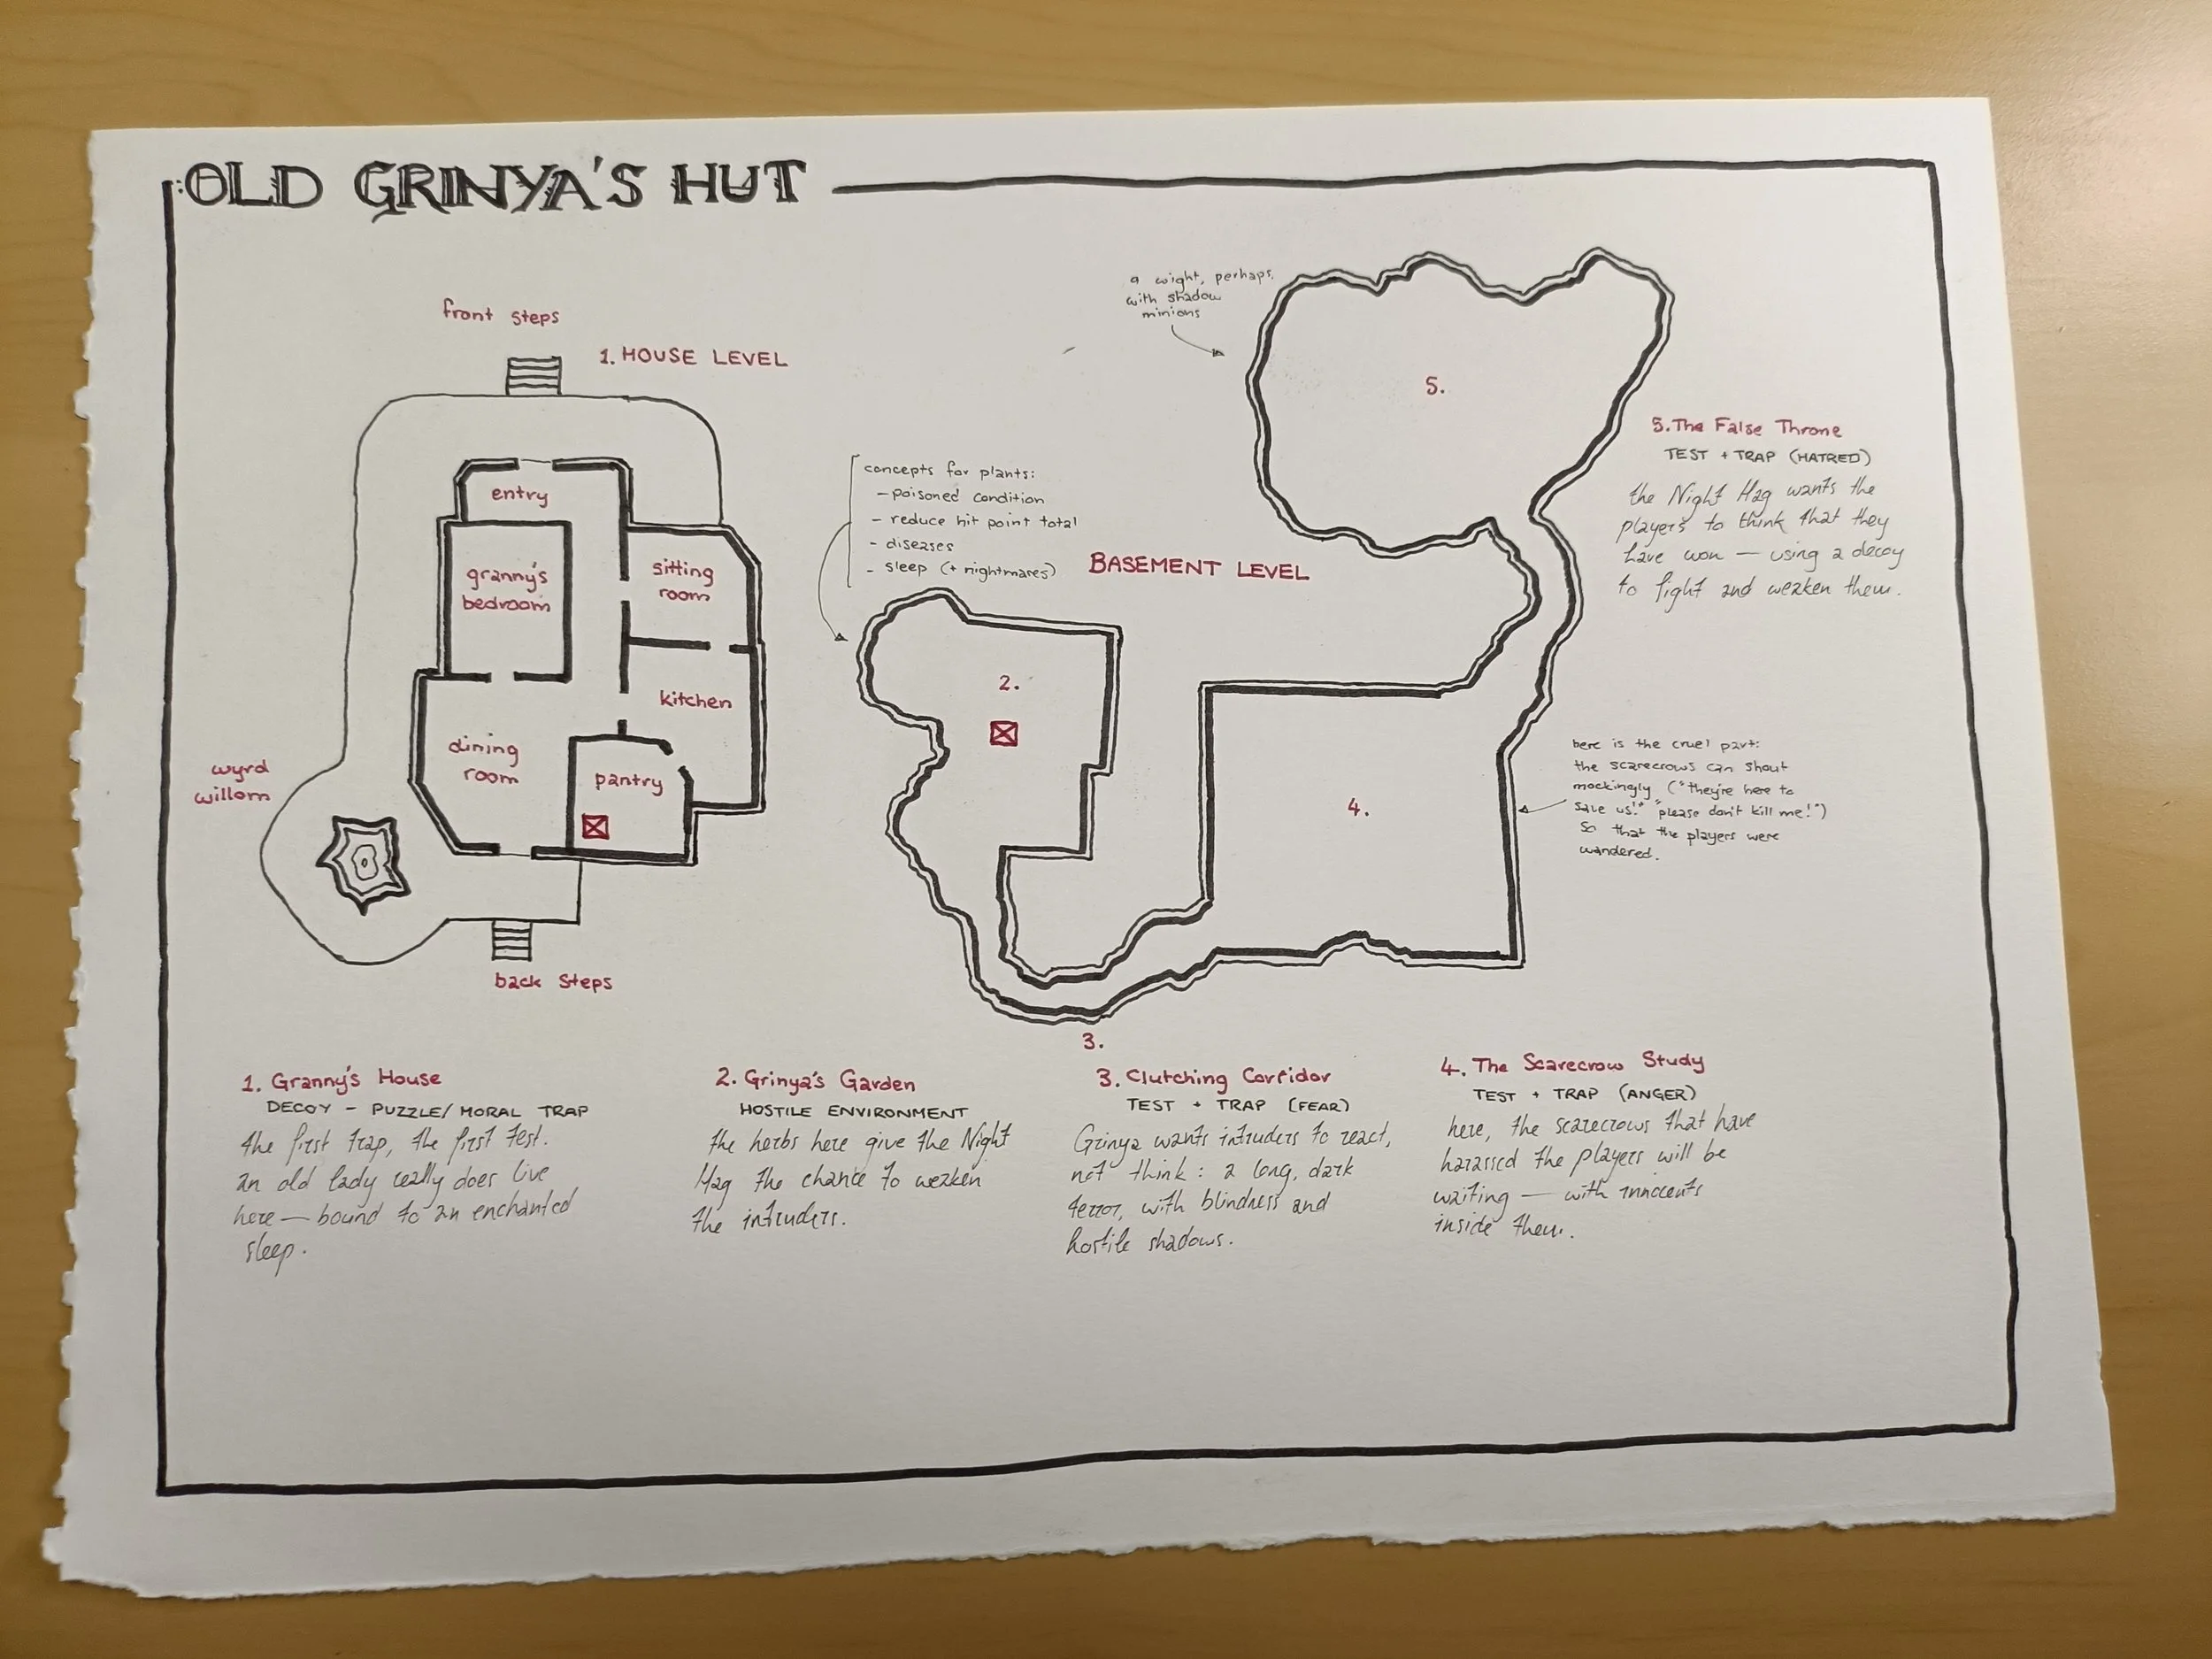 OLD GRINYA'S HUT
front steps
1. HOUSE LEVEL
entry
granny's
bedroom
sitting
room
kitchen
dining
room
pantry
wyrd
willom
back steps
a wight, perhaps,
with shadow
minions
concepts for plants:
- poisoned condition
- reduce hit point total
- diseases
- sleep (+ nightmares)
BASEMENT LEVEL
2.
3.
4.
5.
5. The False Throne
TEST + TRAP (HATRED)
the Night Hag wants the
players to think that they
have won — using a decoy
to fight and weaken them.
here is the cruel part:
the scarecrows can shout
mockingly ("they're here to
save us!" "please don't kill me!")
so that the players were
wandered.
1. Granny's House
DECOY - PUZZLE/MORAL TRAP
the first trap, the first test.
an old lady really does live
here — bound to an enchanted
sleep.
2. Grinya's Garden
HOSTILE ENVIRONMENT
the herbs here give the Night
Hag the chance to weaken
the intruders.
3. Clutching Corridor
TEST + TRAP (FEAR)
Grinya wants intruders to react,
not think: a long, dark
terror, with blindness and
hostile shadows.
4. The Scarecrow Study
TEST + TRAP (ANGER)
here, the scarecrows that have
harassed the players will be
waiting — with innocents
inside them.